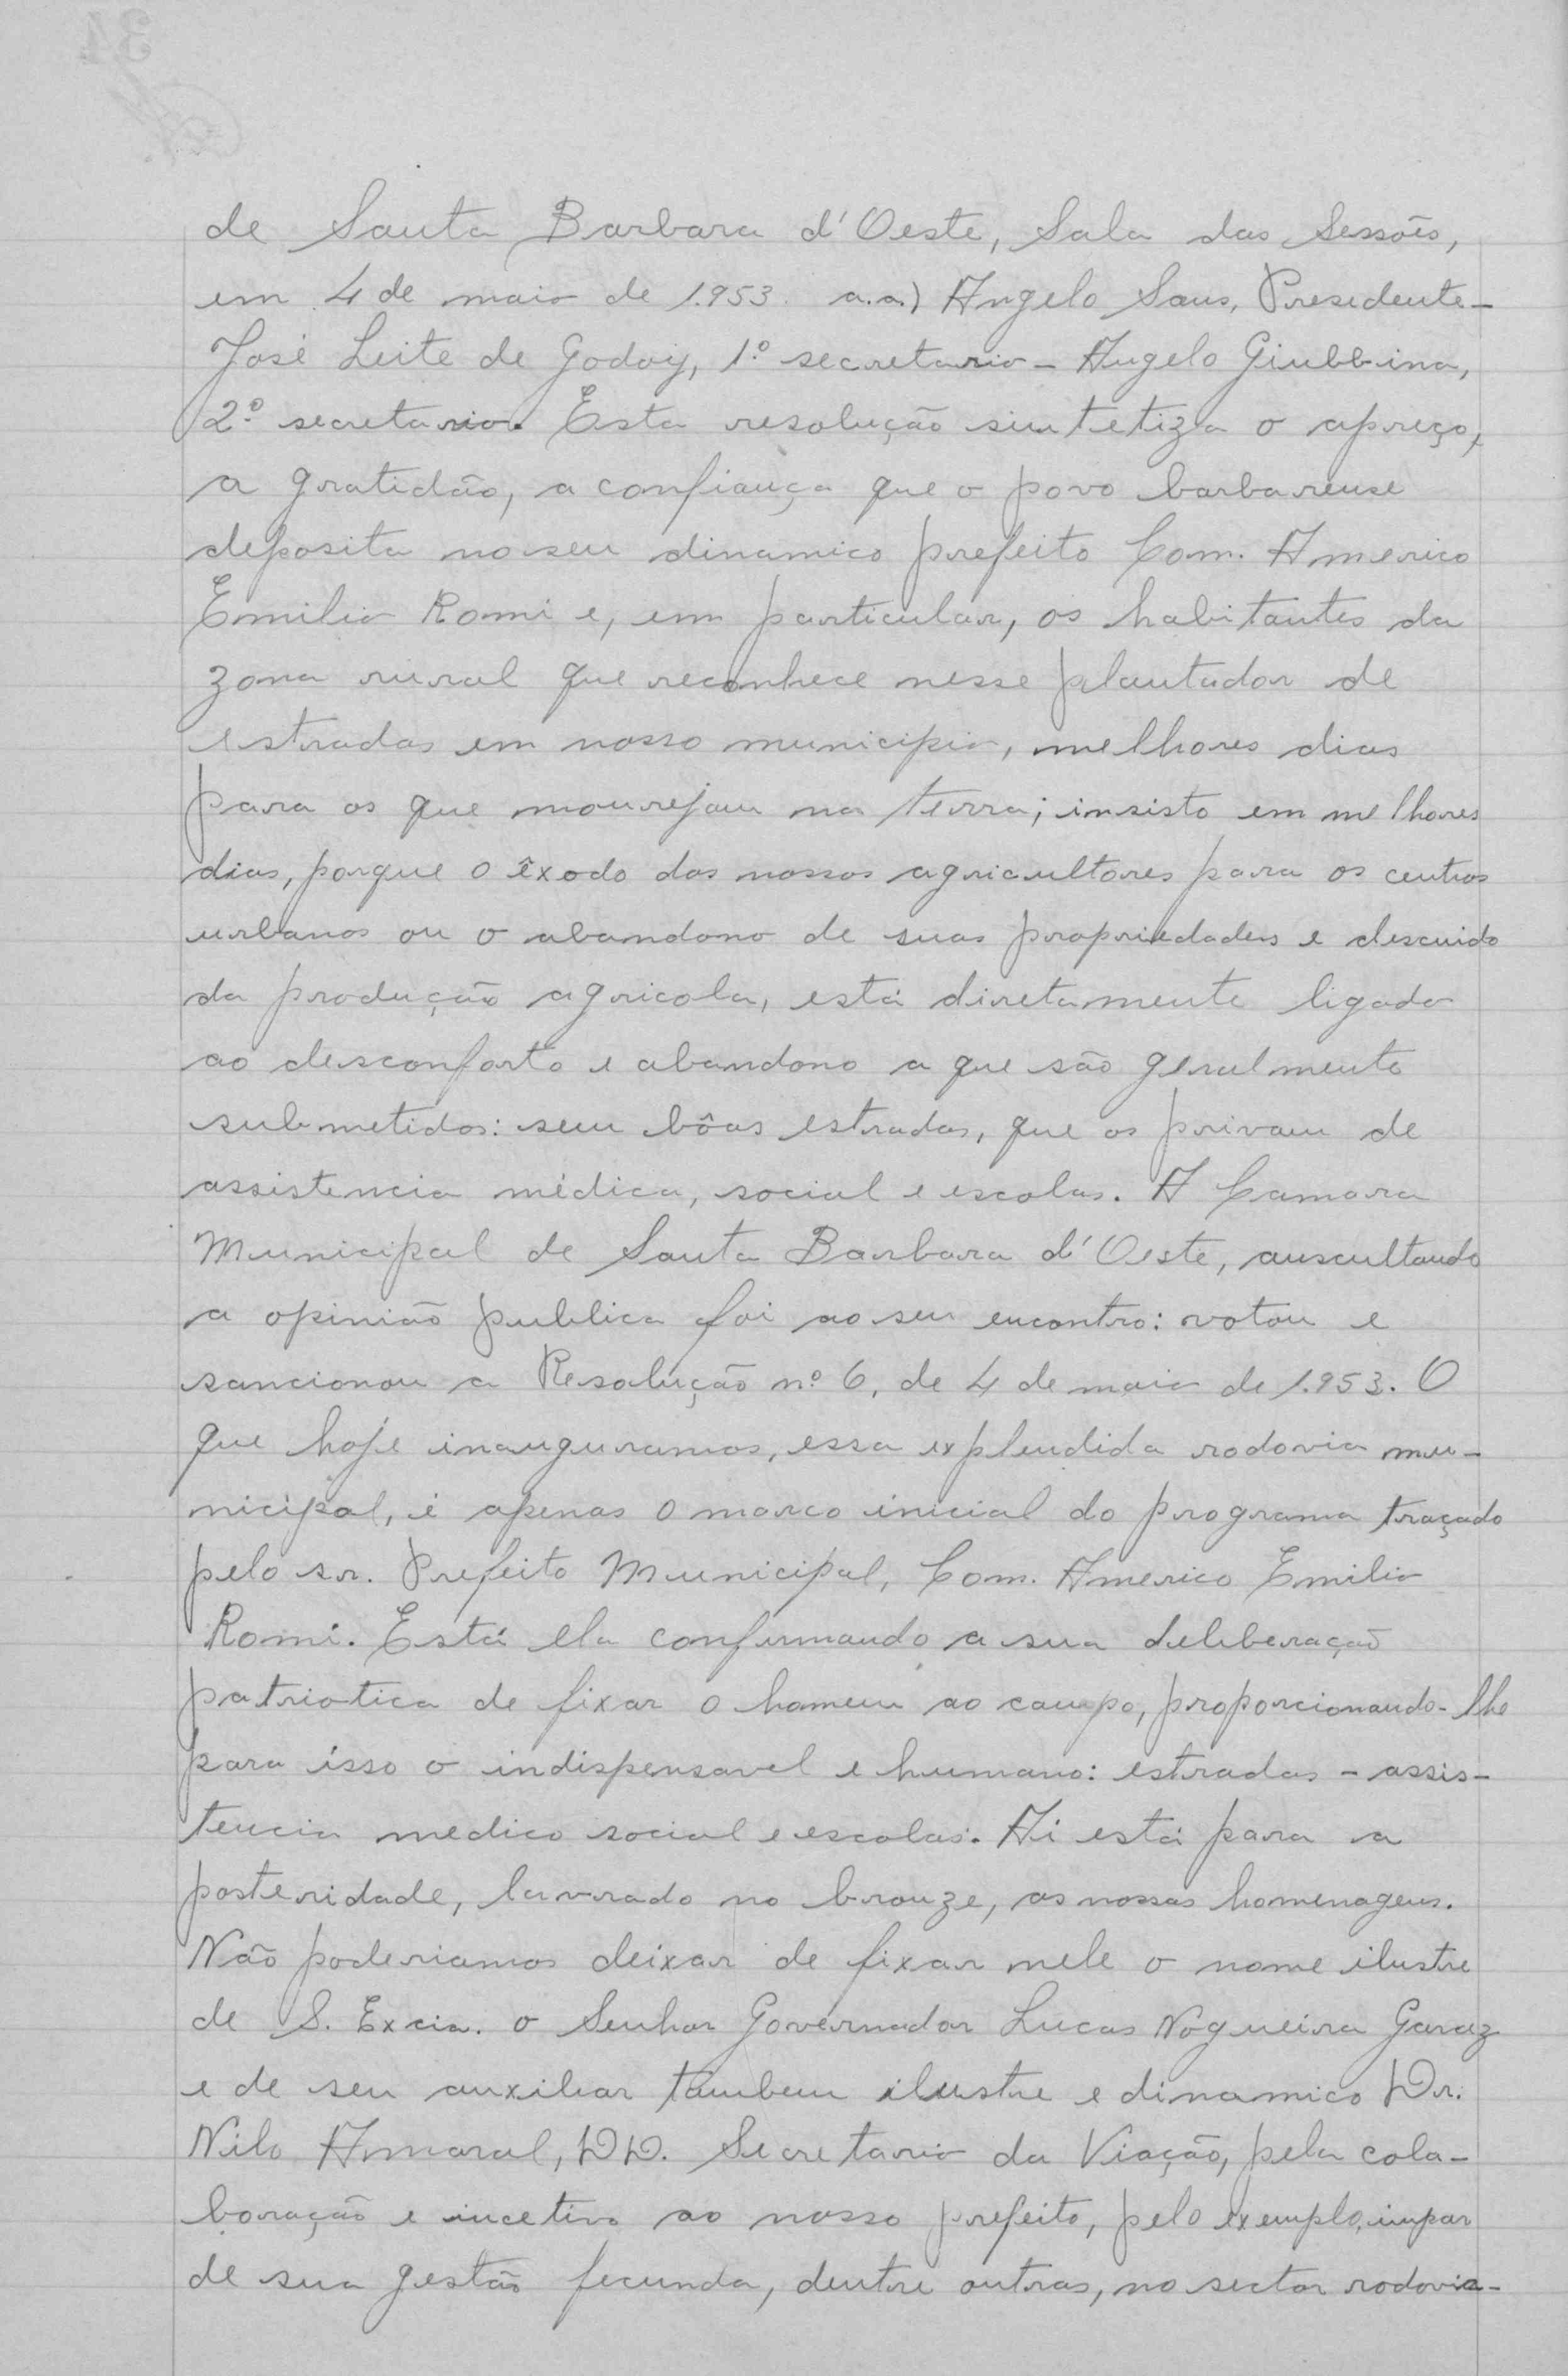 de Santa Barbara d'Oeste, Sala das Sessões,
em 4 de maio de 1.953. a.a.) Angelo Sans, Presidente-
José Leite de Godoy, 1º secretario - Angelo Giubbina,
2º secretario. Esta resolução sintetiza o apreço,
a gratidão, a confiança que o povo barbarense
deposita no seu dinamico prefeito Com. Americo
Emilio Romi e, em particular, os habitantes da
zona rural que reconhece nesse plantador de
estradas em nosso municipio, melhores dias
para os que mourejam na terra; insisto em melhores
dias, porque o êxodo dos nossos agricultores para os centros
urbanos ou o abandono de suas propriedades e descuido
da produção agricola, está diretamente ligado
ao desconforto e abandono a que são geralmente
submetidos: sem bôas estradas, que os privam de
assistencia médica, social e escolas. A Camara
Municipal de Santa Barbara d'Oeste, auscultando
a opinião publica foi ao seu encontro: votou e
sancionou a Resolução nº 6, de 4 de maio de 1.953. O
que hoje inauguramos, essa explendida rodovia mu-
nicipal, é apenas o marco inicial do programa traçado
pelo sr. Prefeito Municipal, Com. Americo Emilio
Romi. Está ela confirmando a sua deliberação
patriotica de fixar o homem ao campo, proporcionando-lhe
para isso o indispensavel e humano: estradas - assis-
tencia medico social e escolas. Ai está para a
posteridade, lavrado no bronze, as nossas homenagens.
Não poderiamos deixar de fixar nele o nome ilustre
de S. Excia. o Senhor Governador Lucas Nogueira Garcez
e de seu auxiliar tambem ilustre e dinamico Dr.
Nilo Amaral, DD. Secretario da Viação, pela cola-
boração e incetivo ao nosso prefeito, pelo exemplo impar
de sua gestão fecunda, dentre outras, no sector rodovia-